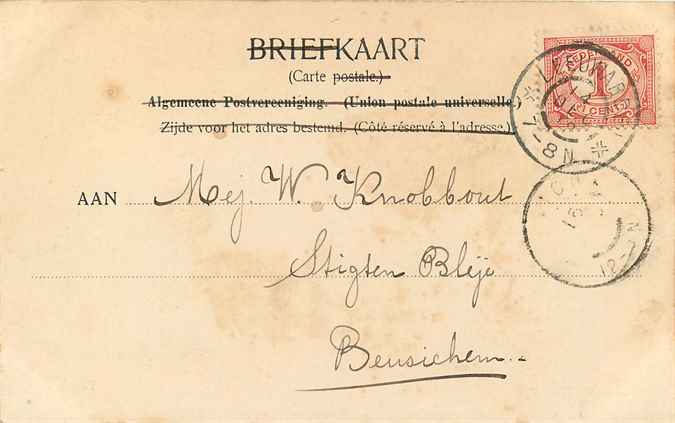 BRIEFKAART
(Carte postale.)
Algemeene Postvereeniging. (Union postale universelle.)
Zijde voor het adres bestemd. (Côté réservé à l'adresse.)
NEDERLAND
1
CENT
7-8N
AAN Mej. W. Knobbout
Stigten Blije
Beusichem.
12-1N